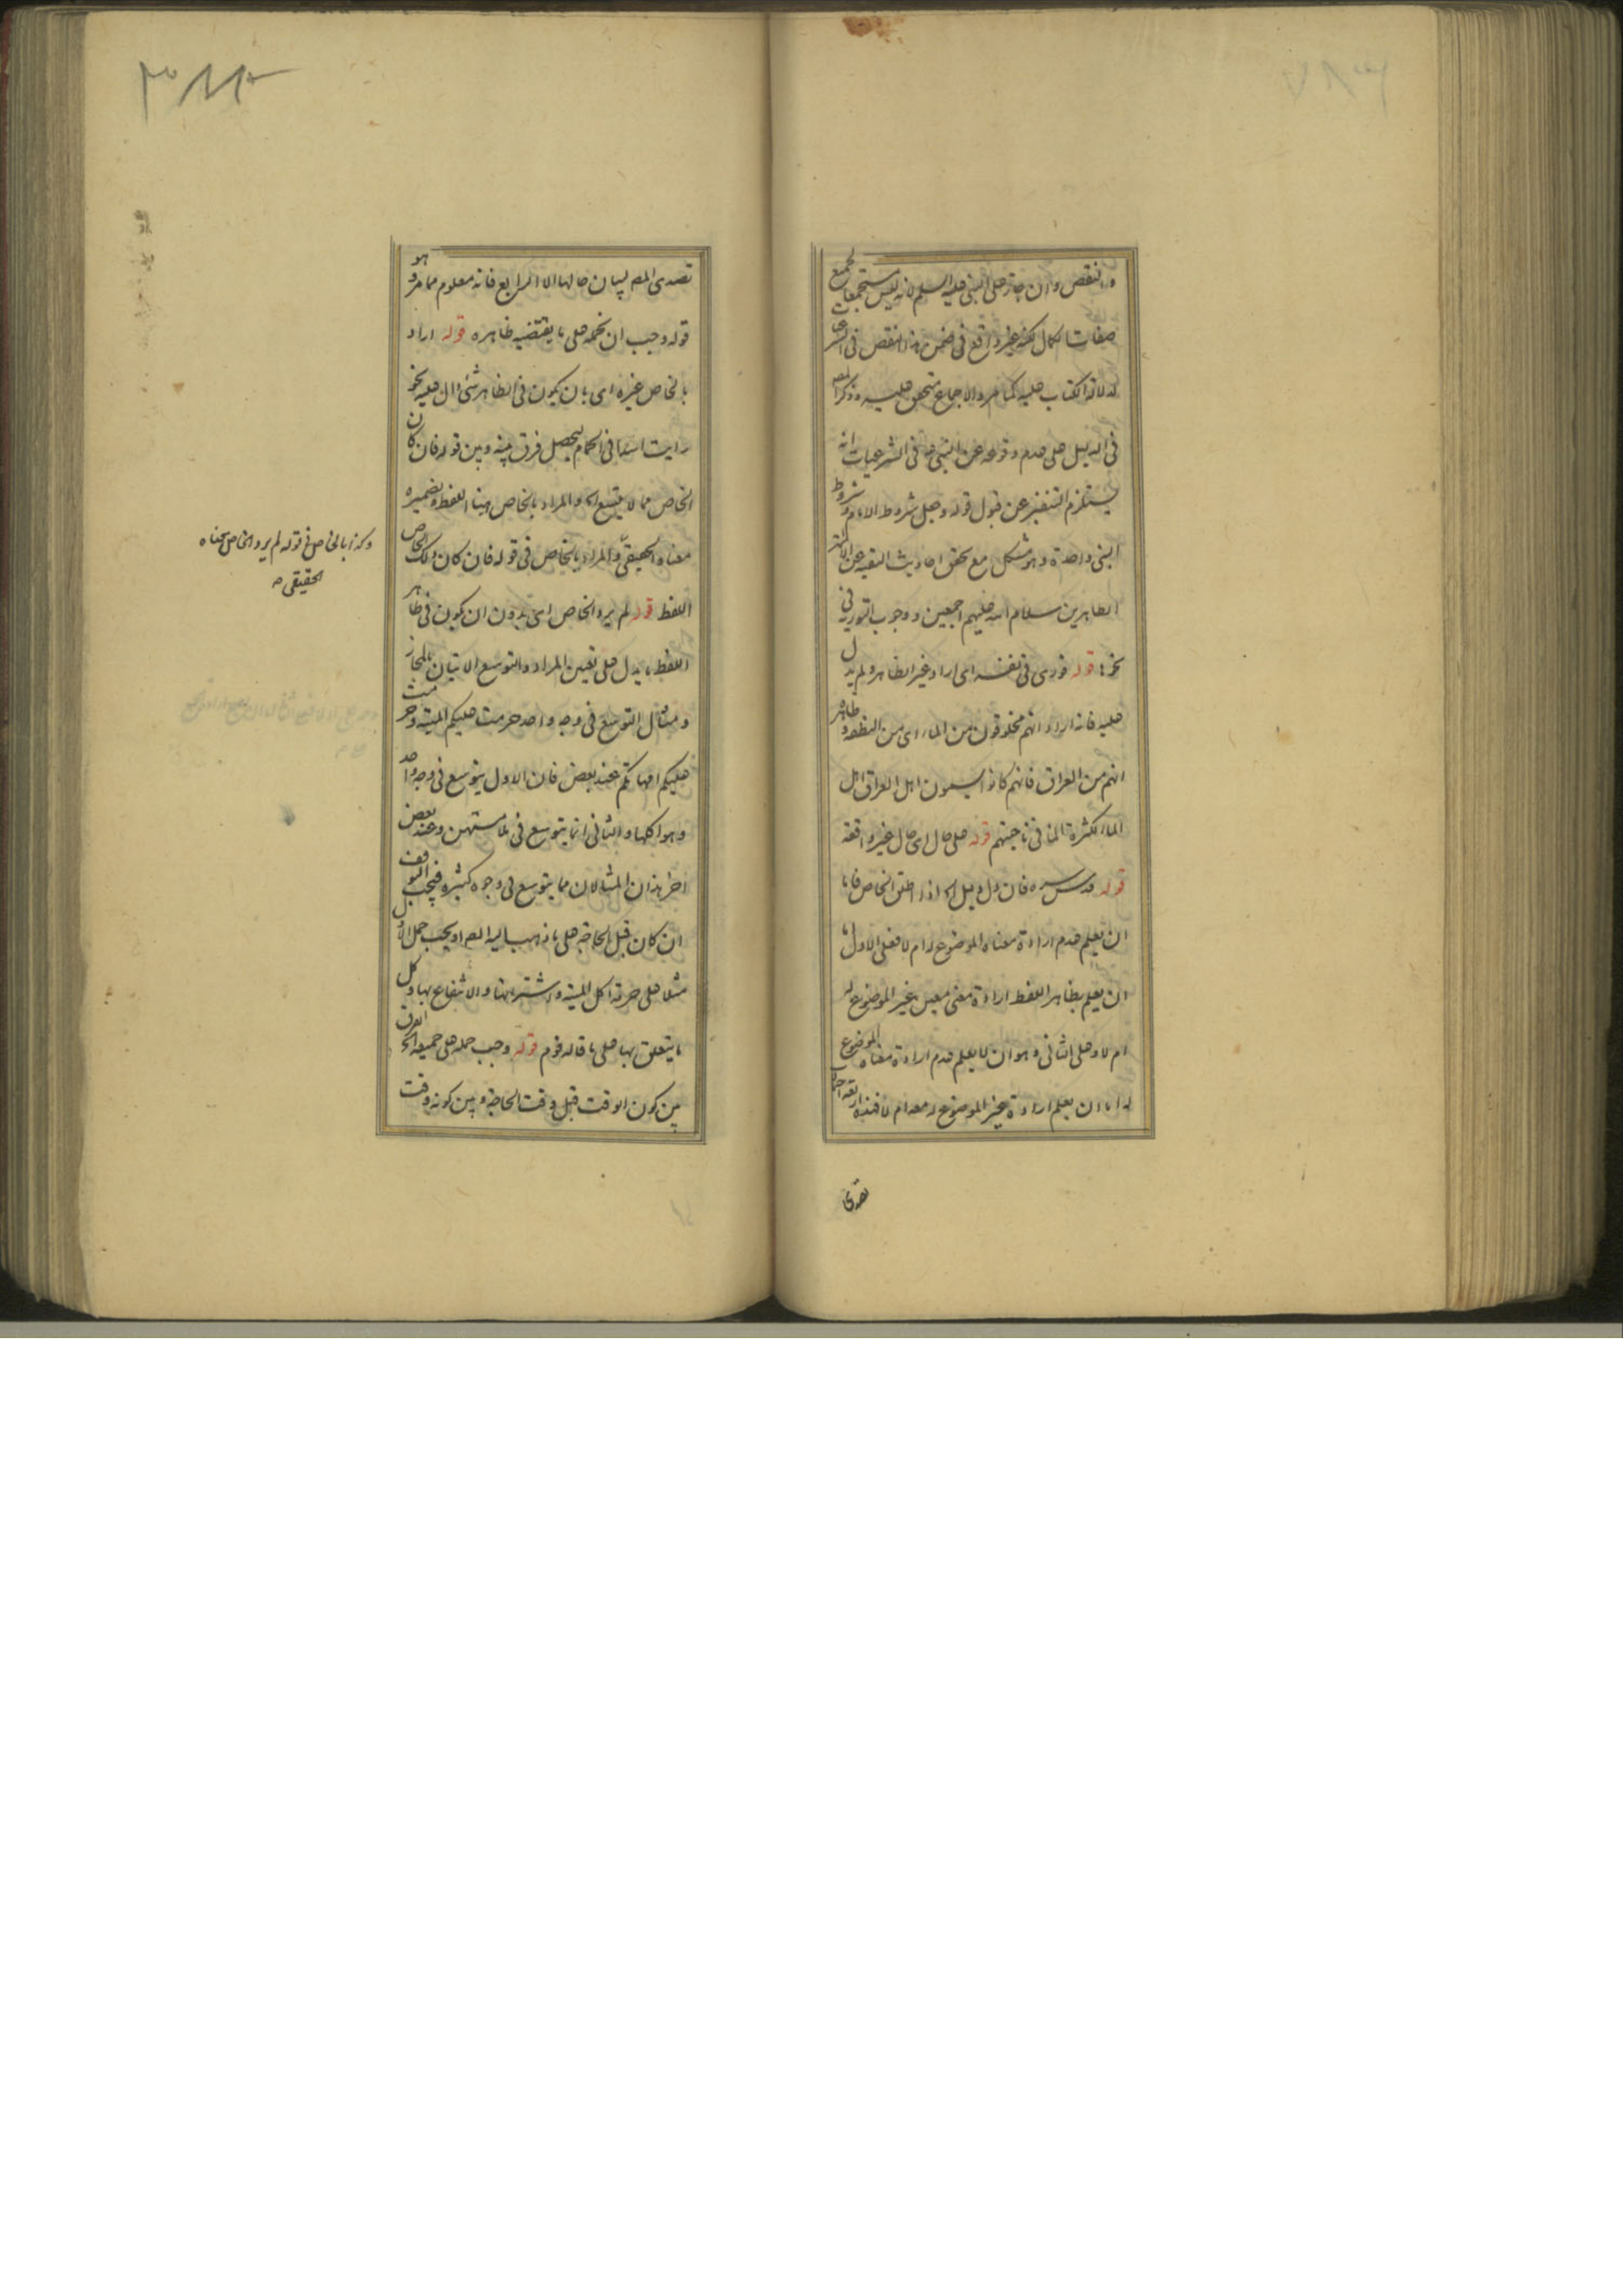 والنقص وان جاز على النبي عليه السلم لانه ليس مستجمعا لجميع
صفات الكمال لكنه غير واقع في ضمن هذا النقص في الشرعيات
لدلالة الكتاب عليه كما مر والاجماع متحقق عليه وذكر المص
في الدليل على عدم وقوعه عن النبي في الشرعيات انه
يستلزم التنفير عن قبول قوله وجعل شروط الامام وشروط
النبي واحدة وهو مشكل مع تحقق احاديث التقية عن الائمة
الطاهرين سلام الله عليهم اجمعين ووجوب التورية في
قوله فورى في نفسه اى اراد غير الظاهر ولم يدل
عليه فانه اراد انهم مخلوقون من الماء اى من النطفة وظاهره
انهم من العراق فانهم كانوا يسمون اهل العراق اهل
الماء لكثرة الماء في ناحيتهم قوله على حال اى حال غير واقفة
قوله قدس سره فان دل دليل الخ اذا اطلق الخاص فاما
ان يعلم عدم ارادة معناه الموضوع له ام لا فعلى الاول اما
ان يعلم بظاهر اللفظ ارادة معنى معين بغير الموضوع له
ام لا وعلى الثاني وهو ان لا يعلم عدم ارادة معناه الموضوع
له اما ان يعلم ارادة غير الموضوع له معه ام لا فهذه اربعة احتمالات
تصدى
تصدى المص لبيان حالها الا الرابع فانه معلوم مما مر وهو
قوله وجب ان نحمله على ما يقتضيه ظاهره قوله اراد
بالخاص غيره اى بان يكون في الظاهر شئ دال عليه نحو
رايت اسدا في الحمام ليحصل فرق بينه وبين قوله فان كان
الخاص مما لا يتسع الخ والمراد بالخاص هنا اللفظ وبضميره
معناه الحقيقي والمراد بالخاص في قوله فان كان ذلك الخاص
اللفظ قوله لم يرد الخاص اى بدون ان يكون في ظاهر
اللفظ ما يدل على تعيين المراد والتوسع الاتيان بالمجاز
ومثال التوسع في وجه واحد حرمت عليكم الميتة وحرمت
عليكم امهاتكم عند بعض فان الاول يتوسع في وجه واحد
وهو اكلها والثاني انما يتوسع في ملامستهن وعند بعض
اخر هذان المثالان مما يتوسع في وجوه كثيرة فيجب التوقف
ان كان قبل الحاجة على ما ذهب اليه المص او يجب حمل الاول
مثلا على حرمة اكل الميتة واشترائها والانتفاع بها وكل
ما يتعلق بها على ما قاله قوم قوله وجب حمله على جميعه الخ الفرق
بين كون الوقت قبل وقت الحاجة وبين كونه وقت
وكذا بالخاص في قوله لم يرد الخاص معناه
الحقيقي